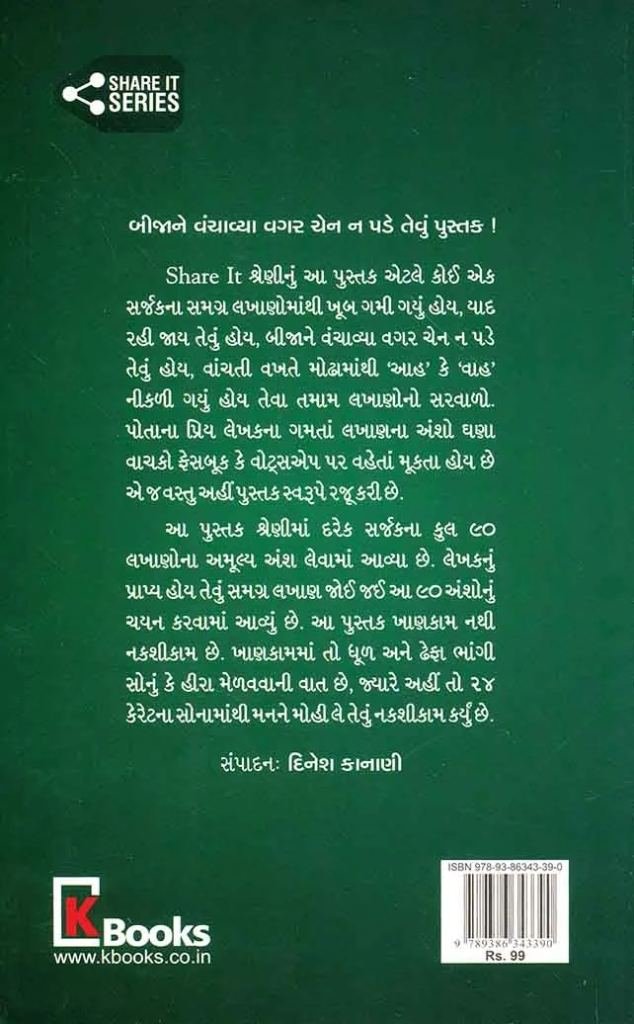 SHARE IT
SERIES
બીજાને વંચાવ્યા વગર ચેન ન પડે તેવું પુસ્તક !
Share It શ્રેણીનું આ પુસ્તક એટલે કોઈ એક
સર્જકના સમગ્ર લખાણોમાંથી ખૂબ ગમી ગયું હોય, યાદ
રહી જાય તેવું હોય, બીજાને વંચાવ્યા વગર ચેન ન પડે
તેવું હોય, વાંચતી વખતે મોઢામાંથી ‘આહ’ કે ‘વાહ’
નીકળી ગયું હોય તેવા તમામ લખાણોનો સરવાળો.
પોતાના પ્રિય લેખકના ગમતાં લખાણના અંશો ઘણા
વાચકો ફેસબૂક કે વોટ્સએપ પર વહેતાં મૂકતા હોય છે
એ જ વસ્તુ અહીં પુસ્તક સ્વરૂપે રજૂ કરી છે.
આ પુસ્તક શ્રેણીમાં દરેક સર્જકના કુલ ૯૦
લખાણોના અમૂલ્ય અંશ લેવામાં આવ્યા છે. લેખકનું
પ્રાપ્ય હોય તેવું સમગ્ર લખાણ જોઈ જઈ આ ૯૦ અંશોનું
ચયન કરવામાં આવ્યું છે. આ પુસ્તક ખાણકામ નથી
નકશીકામ છે. ખાણકામમાં તો ધૂળ અને ઢેફા ભાંગી
સોનું કે હીરા મેળવવાની વાત છે, જ્યારે અહીં તો ૨૪
કેરેટના સોનામાંથી મનને મોહી લે તેવું નકશીકામ કર્યું છે.
સંપાદન: દિનેશ કાનાણી
ISBN 978-93-86343-39-0
9 789386 343390
Rs. 99
K Books
www.kbooks.co.in